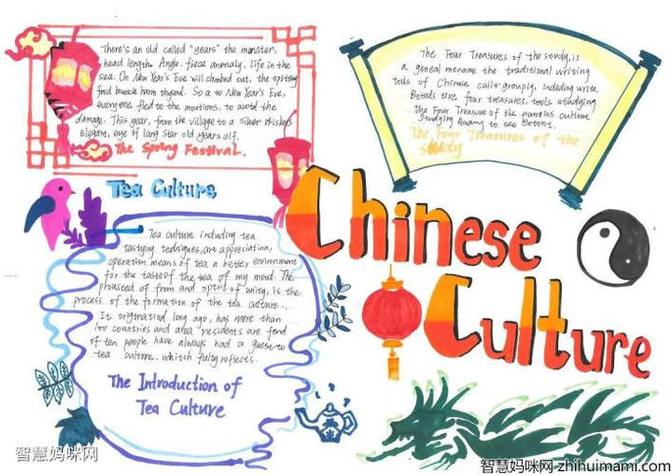 There's an old called "years" the monster,
head length Angle. fierce anomaly, life in the
sea. On New Year's Eve will climbed out, the
find hence hom thgend. So a to New Year's Eve,
everyone fled to the mountions, to avoid the
damage. This year, from the village to a silver
elegent, eye if lang star old years elf.
The Spring Festival.
The Four Treasures of the study, is
a geneal mename the traditional writing
tools of Chinese calli grouply, including write.
Betols tire four treasures, tools studying
the Four Treasure of the culture
Studying to see Betons.
The four Treasures of the
study
Tea Culture
Tea culture including tea
tasying techniques, are appreciation,
operation means of tea a better environment
for the taste of the tea of my mood. The
prouseed of from and spirit of wing, is the
process of the formation of the tea culture..
It originatied long ago, has more than
100 countries and area residents are fend
of ten people have always had a guest to
tea culture, whitch fully reflects.
The Introduction of
Tea Culture
Chinese
Culture
智慧妈咪网
智慧妈咪网-zhihuimami.com